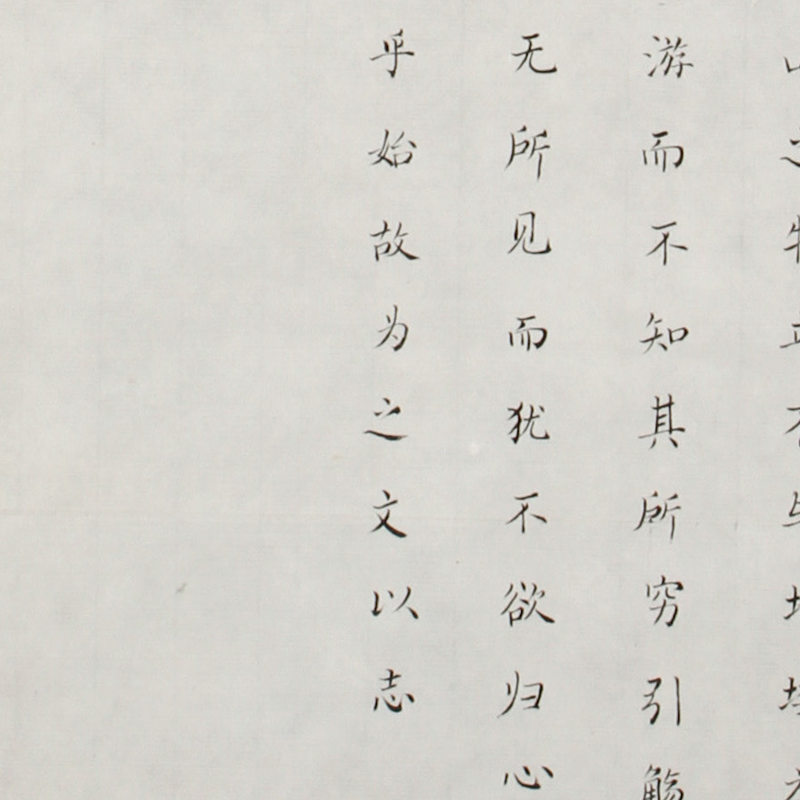 游而不知其所穷引觞
无所见而犹不欲归心
乎始故为之文以志